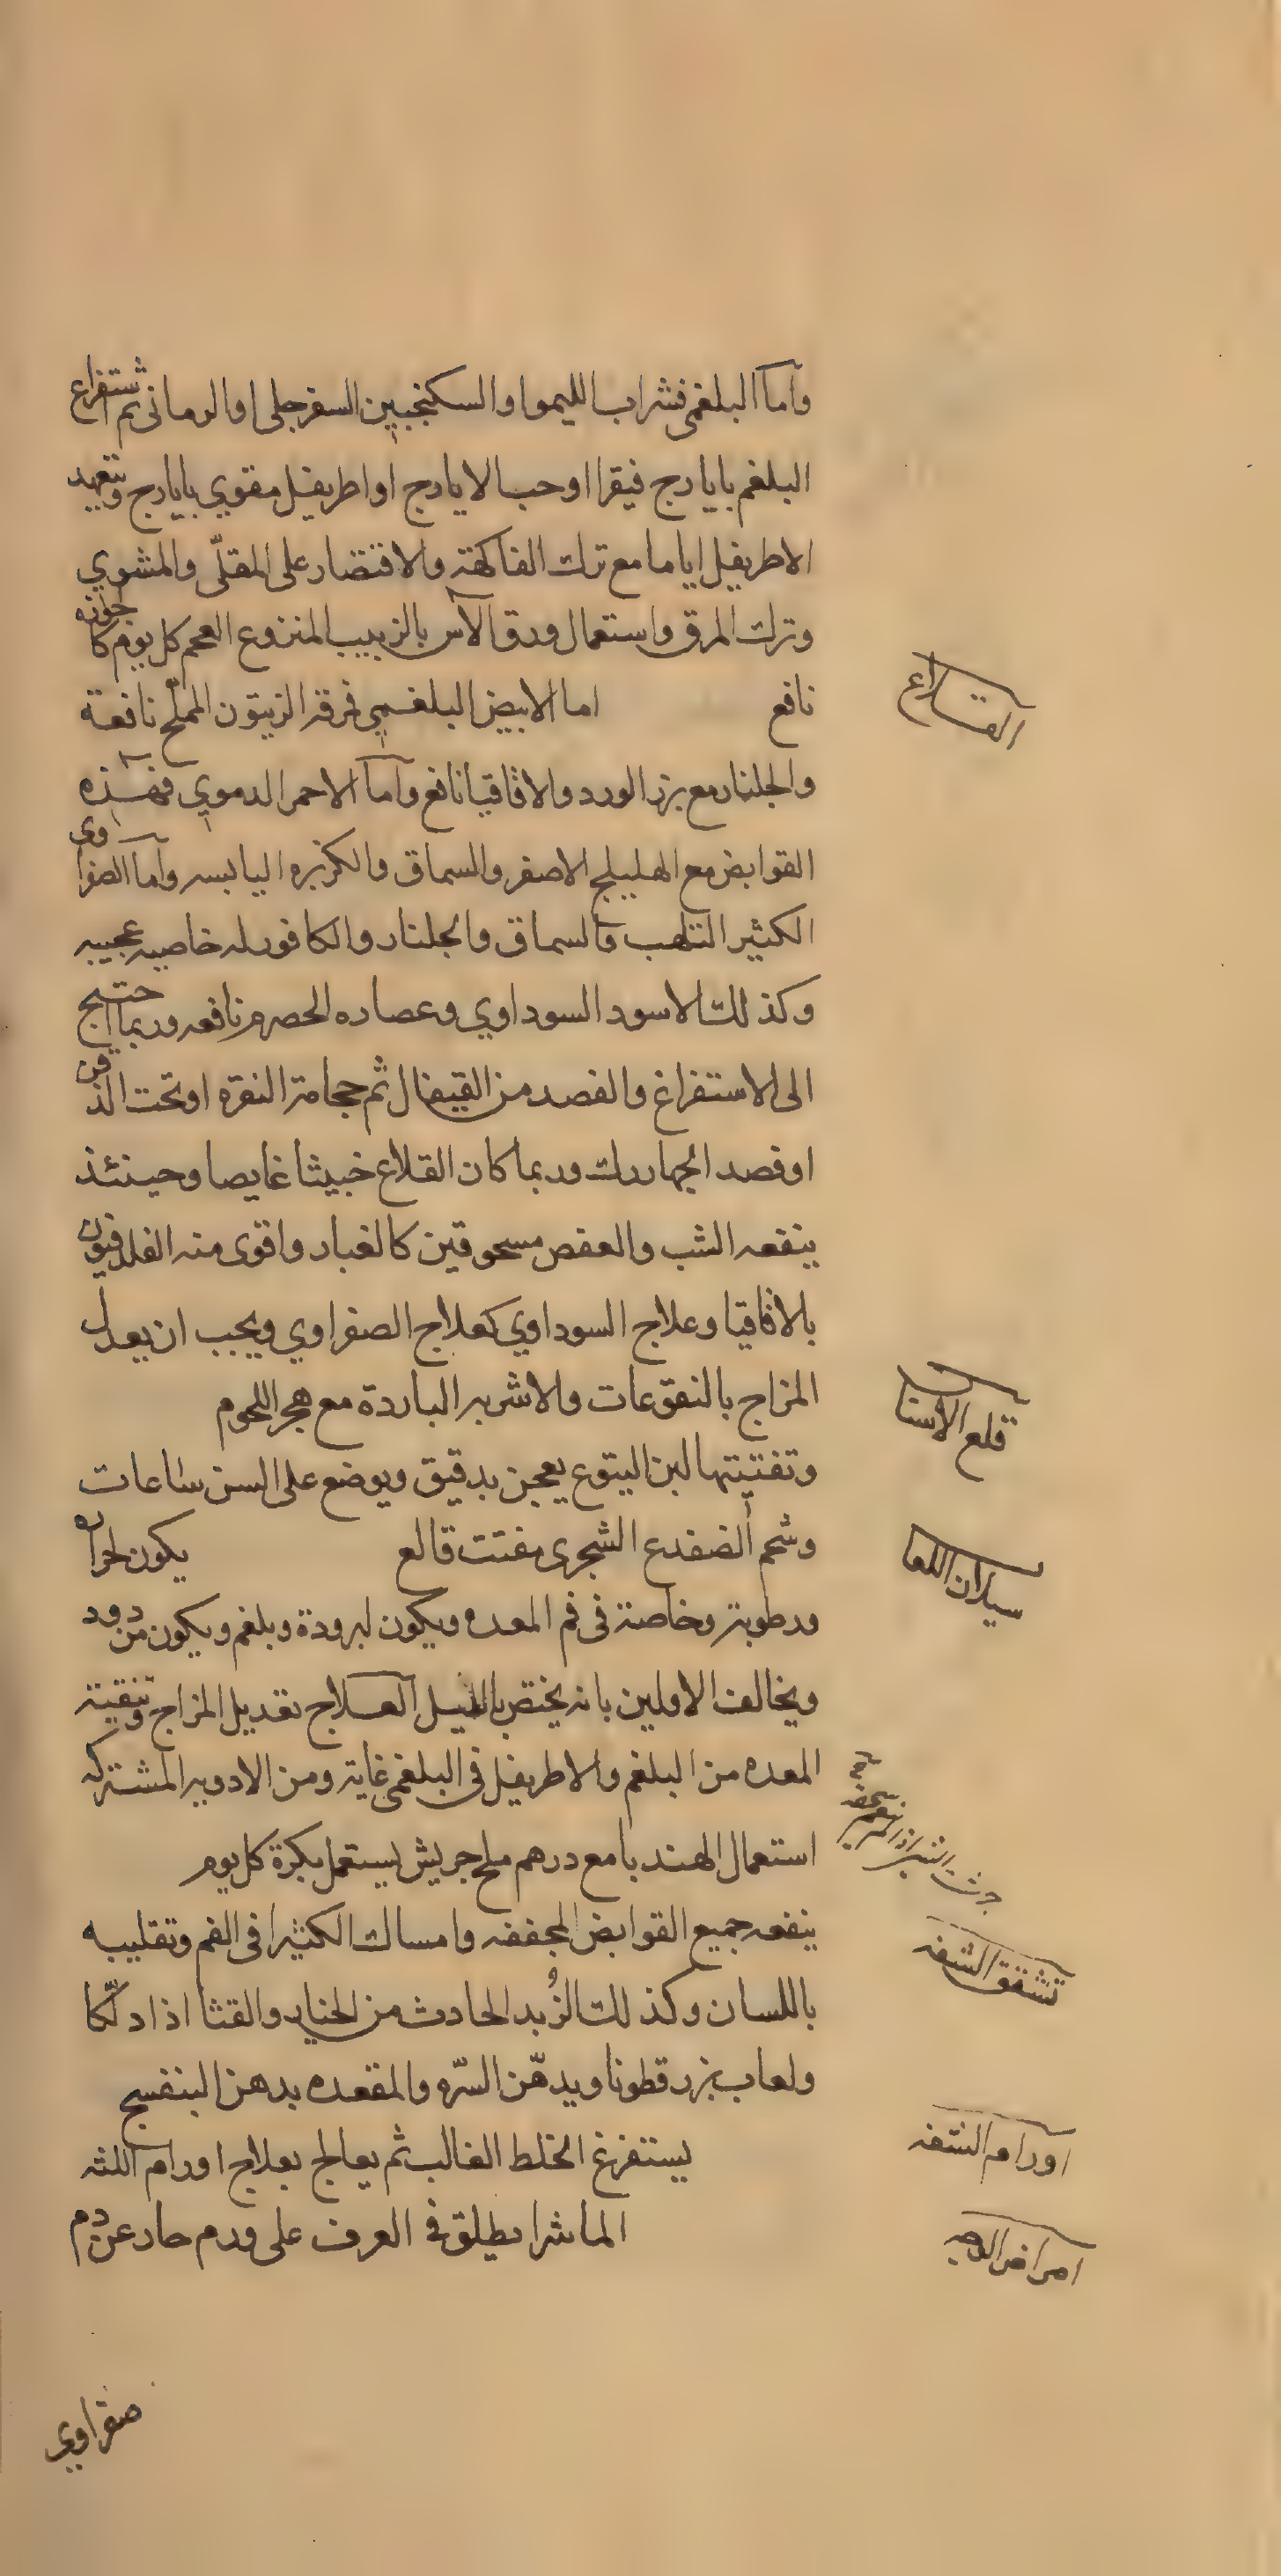 وأما البلغمي فشراب الليموا والسكنجبين السفرجلي او الرماني ثم تستفراغ
البلغم بايارج فيقرا او حب الايارج او اطريفل مقوي بايارج وتتعهد
الاطريفل اياما مع ترك الفاكهة والاقتصار على المقلّى والمشوي
وترك المرق واستعمال ورق الآس بالزبيب المنزوع العجم كل يوم كا جوزه
نافع اما الابيض البلغمي فمرقة الزيتون المملّح نافعة
القلاع
والجلنار مع بزر الورد والاقاقيا نافع وأما الاحمر الدموي فهذه
القوابض مع الهليلج الاصفر والسماق والكزبره اليابسه وأما الصفراوي
الكثير التلهب فالسماق والجلنار والكافور له خاصيه عجيبه
وكذلك الاسود السوداوي وعصاره الحصرم نافعه وربما احتيج
الى الاستفراغ والفصد من القيفال ثم حجامة النقرة او تحت الذقن
او فصد الجهاررك وربما كان القلاع خبيثا غايصا وحينئذ
ينفعه الشب والعفص مسحوقين كالغبار واقوى منه الفلدفيون
بالاقاقيا وعلاج السوداوي كعلاج الصفراوي ويجب ان يعدل
المزاج بالنقوعات والاشربه الباردة مع هجر اللحوم
قلع الاسنان
وتفتيتها لبن اليتوع يعجن بدقيق ويوضع على السن ساعات
وشحم الضفدع الشجرى مفتت قالع يكون لحراره
سيلان اللعاب
ورطوبة وخاصة فى فم المعده ويكون لبرودة وبلغم ويكون من دود
ويخالف الاولين بانه يختص بالليل العلاج تعديل المزاج وتنقية
المعده من البلغم والاطريفل فى البلغمى غاية ومن الادويه المشتركه
استعمال الهندبا مع درهم ملح جريش يستعمل بكرة كل يوم
جرشت الشى اذا لم ينعم سحقه
ينفعه جميع القوابض المجففه وامساك الكثيرا فى الفم وتقليبه
تشقق الشفه
باللسان وكذلك الزُبد الحادث من الخيار والقثا اذا دلّكا
ولعاب بزر قطونا ويدهّن السرّه والمقعده بدهن البنفسج
يستفرغ الخلط الغالب ثم يعالج بعلاج اورام اللثه
اورام الشفه
الماشرا يطلق فى العرف على ورم حار عن دم
امراض الوجه
صفراوي